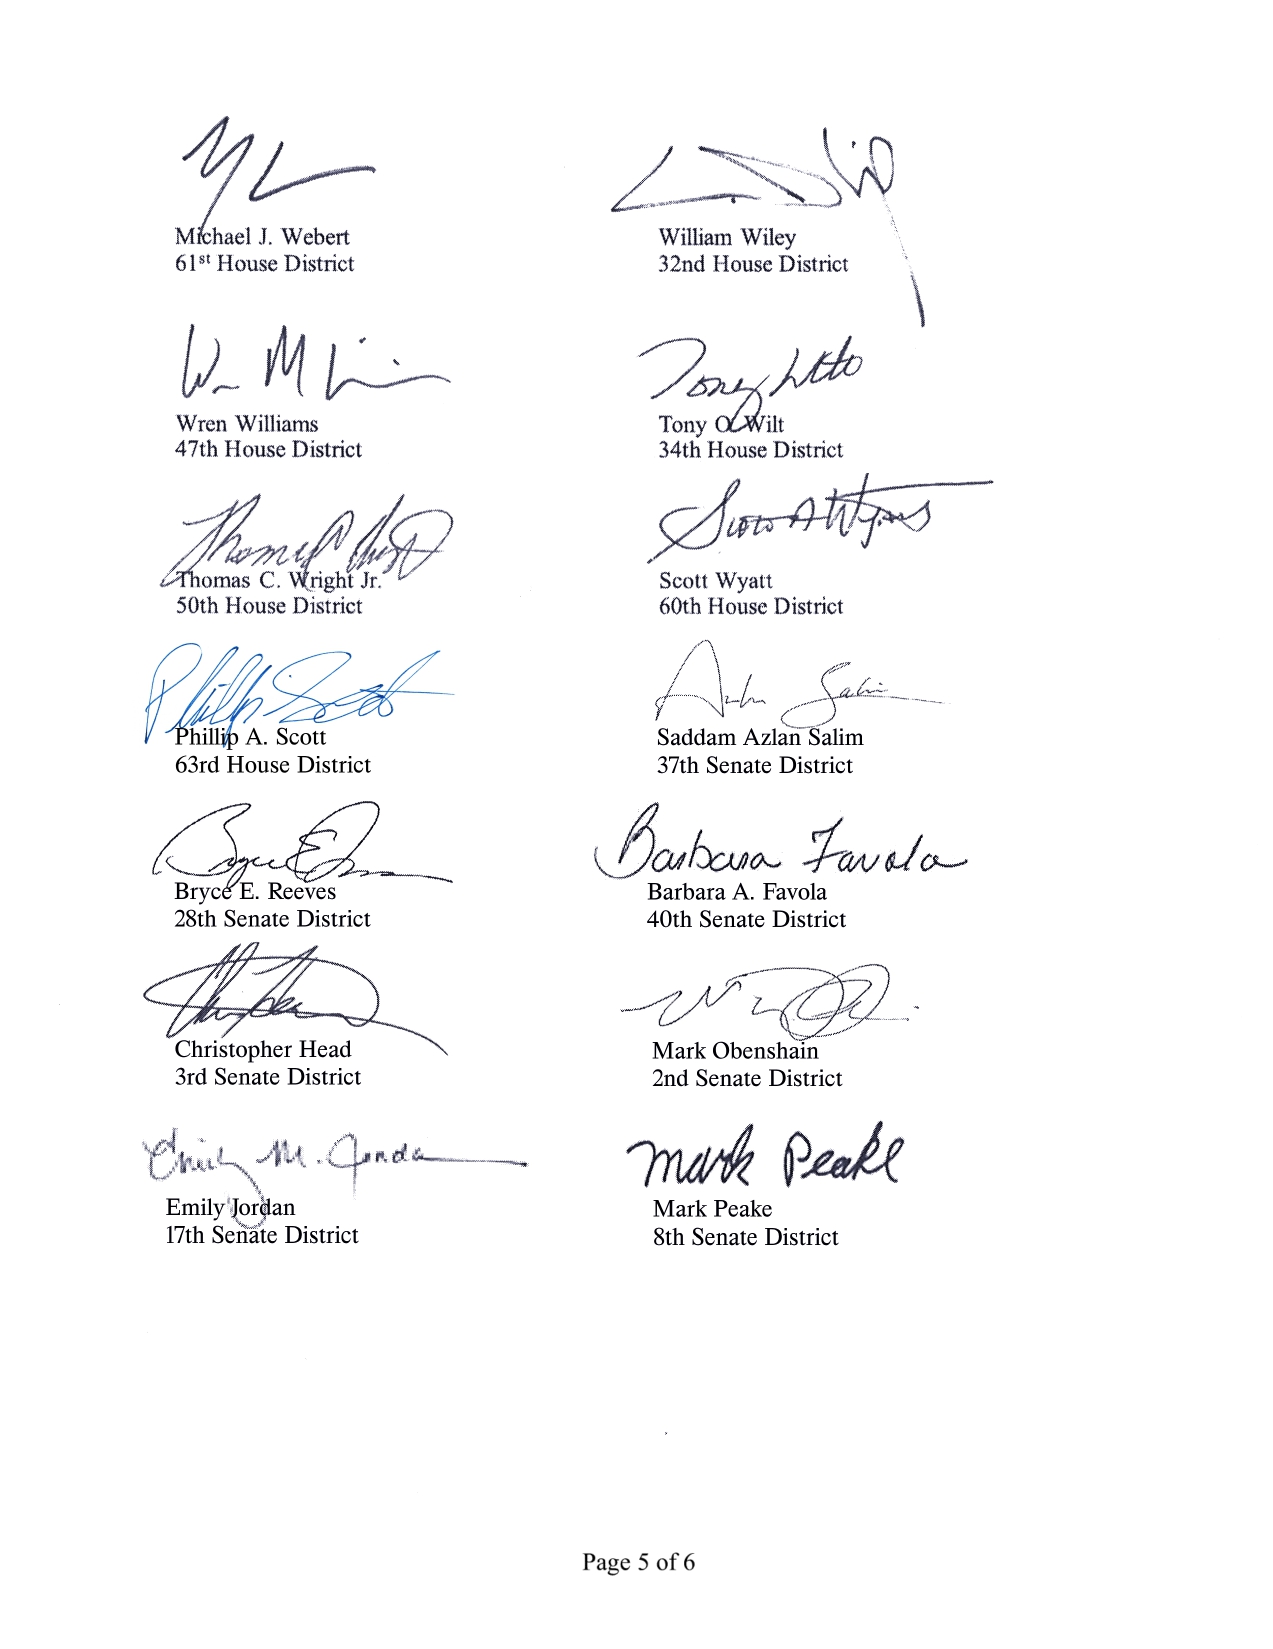 Michael J. Webert
61st House District
William Wiley
32nd House District
Wren Williams
47th House District
Tony Wilt
Tony O. Wilt
34th House District
Thomas C. Wright Jr.
50th House District
Scott A Wyatt
Scott Wyatt
60th House District
Phillip Scott
Phillip A. Scott
63rd House District
Azlan Salim
Saddam Azlan Salim
37th Senate District
Bryce E. Reeves
28th Senate District
Barbara Favola
Barbara A. Favola
40th Senate District
Christopher Head
3rd Senate District
Mark Obenshain
2nd Senate District
Emily M. Jordan
Emily Jordan
17th Senate District
Mark Peake
Mark Peake
8th Senate District
Page 5 of 6